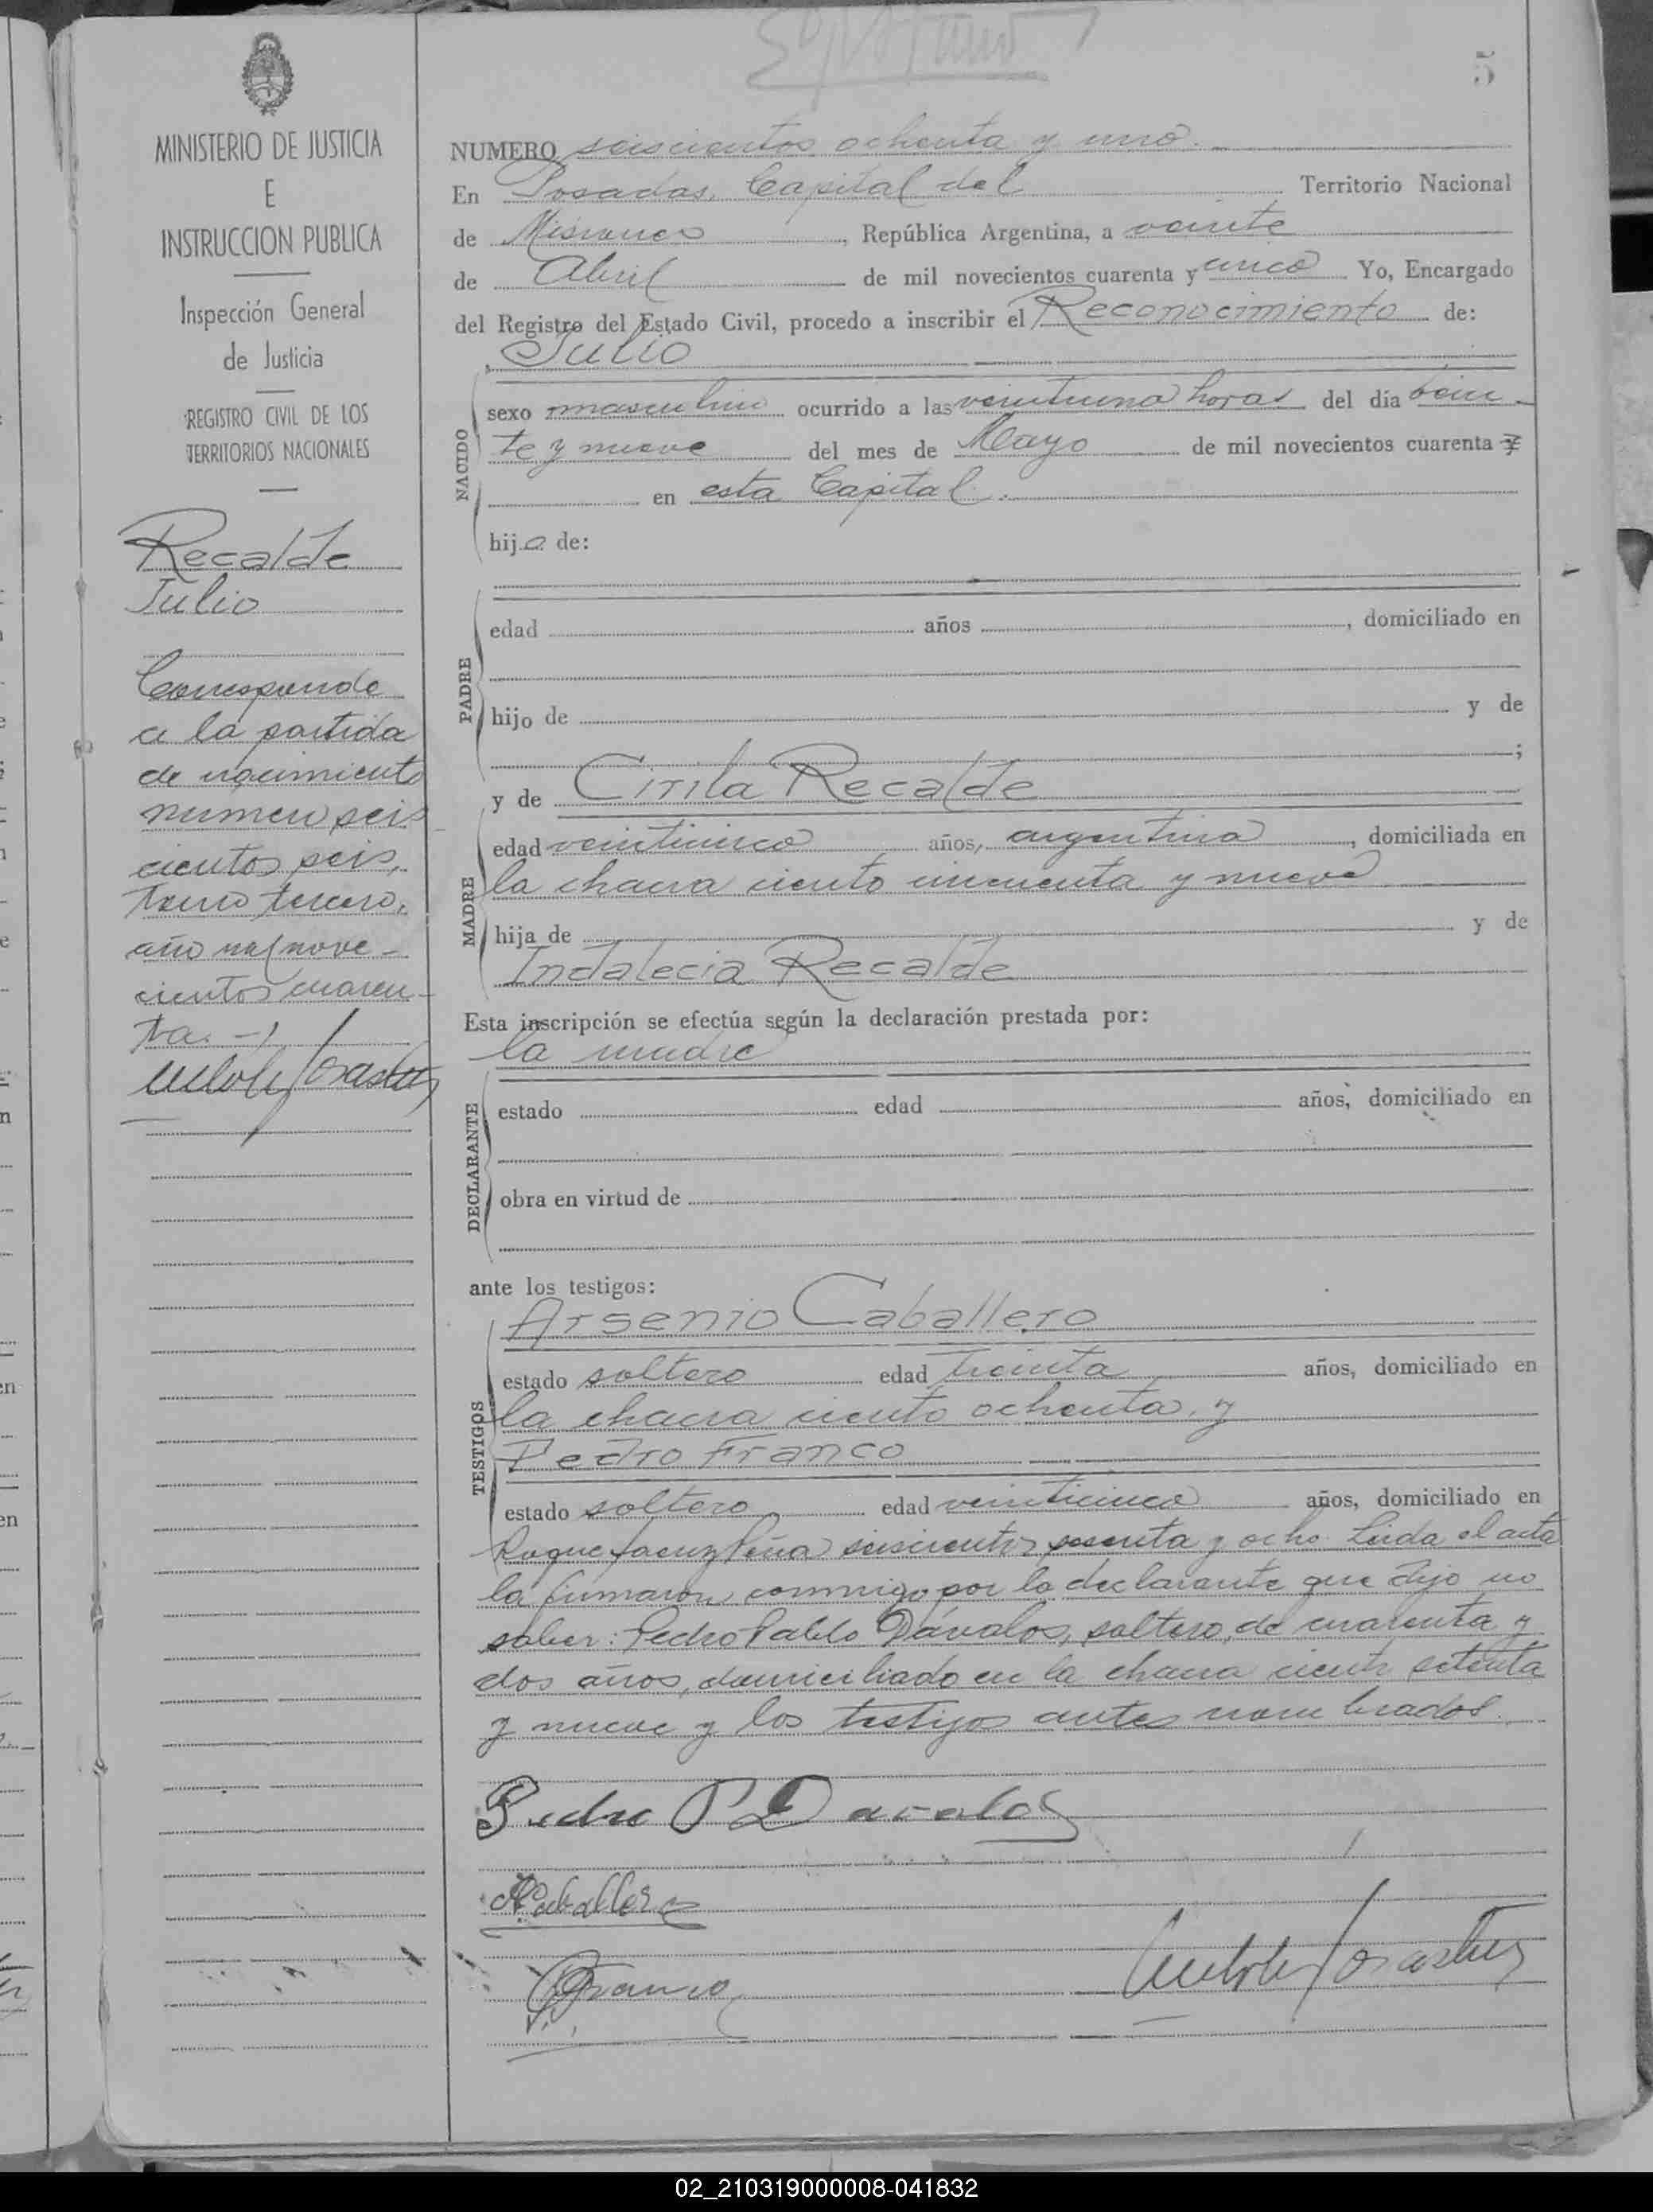 5
MINISTERIO DE JUSTICIA
E
INSTRUCCION PUBLICA
Inspección General
de Justicia
REGISTRO CIVIL DE LOS
TERRITORIOS NACIONALES
Recalde
Julio
Corresponde
a la partida
de nacimiento
numero seis
cientos seis,
tomo tercero,
año mil nove-
cientos cuaren-
ta.-
NUMERO seiscientos ochenta y uno.
En Posadas, Capital del Territorio Nacional
de Misiones, República Argentina, a veinte
de Abril de mil novecientos cuarenta y cinco Yo, Encargado
del Registro del Estado Civil, procedo a inscribir el Reconocimiento de:
Julio
NACIDO
sexo masculino ocurrido a las veintiuna horas del dia vein-
te y nueve del mes de Mayo de mil novecientos cuarenta y
en esta Capital.
hijo de:
PADRE
edad años, domiciliado en
hijo de y de
;
y de Cirila Recalde
MADRE
edad veinticinco años, argentina, domiciliada en
la chacra ciento cincuenta y nueve
hija de y de
Indalecia Recalde
Esta inscripción se efectúa según la declaración prestada por:
la madre
DECLARANTE
estado edad años, domiciliado en
obra en virtud de
ante los testigos:
TESTIGOS
Arsenio Caballero
estado soltero edad treinta años, domiciliado en
la chacra ciento ochenta, y
Pedro Franco
estado soltero edad veinticinco años, domiciliado en
Roque Saenz Peña seiscientos sesenta y ocho. Leida el acta
la firmaron conmigo por la declarante que dijo no
saber: Pedro Pablo Dávalos, soltero, de cuarenta y
dos años, domiciliado en la chacra ciento setenta
y nueve y los testigos antes nombrados.
Pedro P Davalos
A. Caballero
P. Franco
02_210319000008-041832